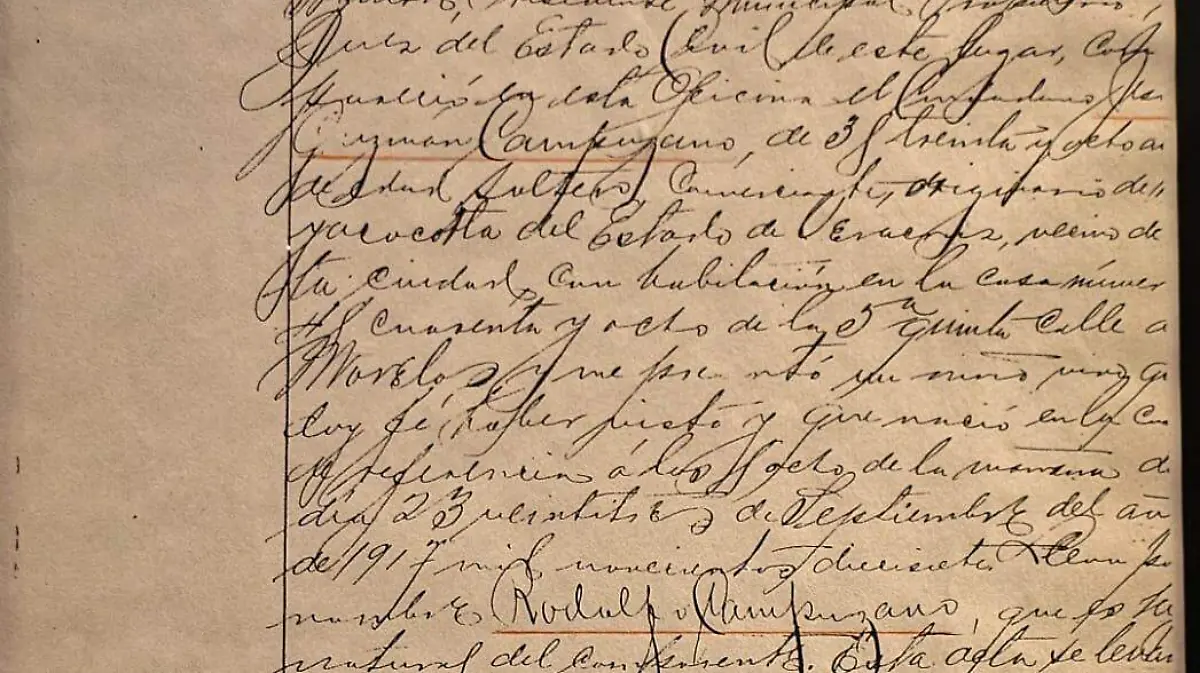 Presidente Municipal Propietario,
Juez del Estado Civil de este lugar, com
pareció en esta Oficina el Ciudadano
Guzmán Campuzano, de 38 treinta y ocho a
de edad, soltero, Comerciante, originario de
yacocotla del Estado de Veracruz, vecino de
ta ciudad, con habitación en la casa númer
48 cuarenta y octo de la 5a quinta calle
Morelos, y me presentó un niño vivo q
doy fé, haber visto y que nació en la ca
de referencia á las 8 octo de la mañana d
día 23 veintitrés de Septiembre del añ
de 1917 mil novecientos diecisiete. Lleva po
nombre Rodulfo Campuzano, que es
natural del compareciente. Esta acta se levan